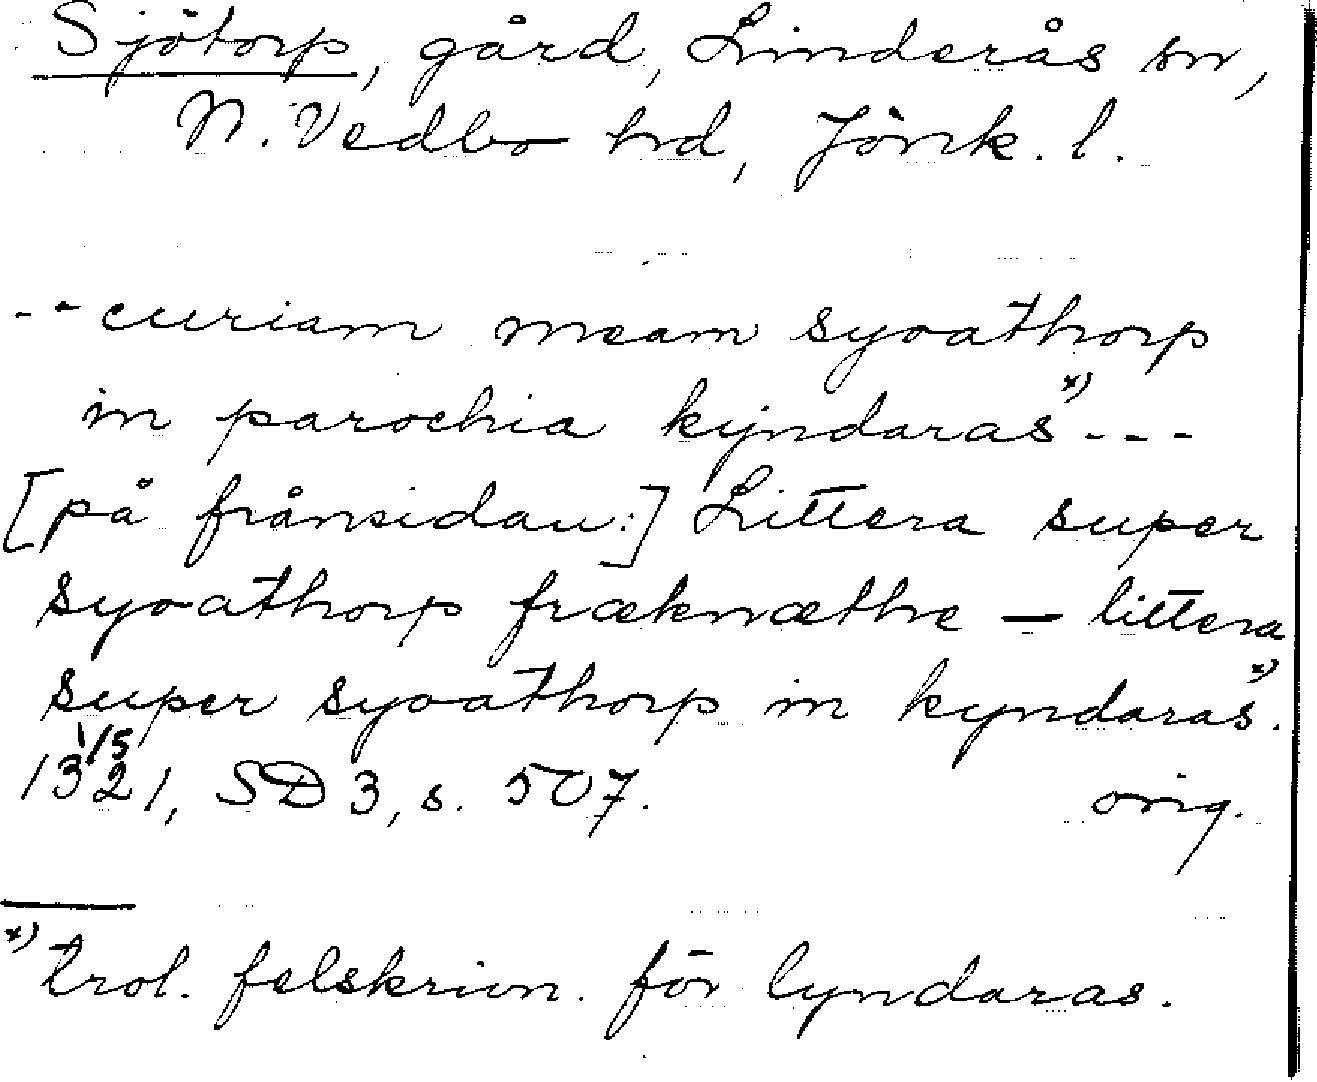 Sjötorp, gård, Linderås sn,
N. Vedbo hd, Jönk. l.
-- curiam meam syoathorp
in parochia kyndaras *) ---
[på frånsidan:] Littera super
syoathorp fræknæthe — littera
super syoathorp in kyndaras *).
1/5
1321, SD 3, s. 507. orig.
*) trol. felskrivn. för lyndaras.